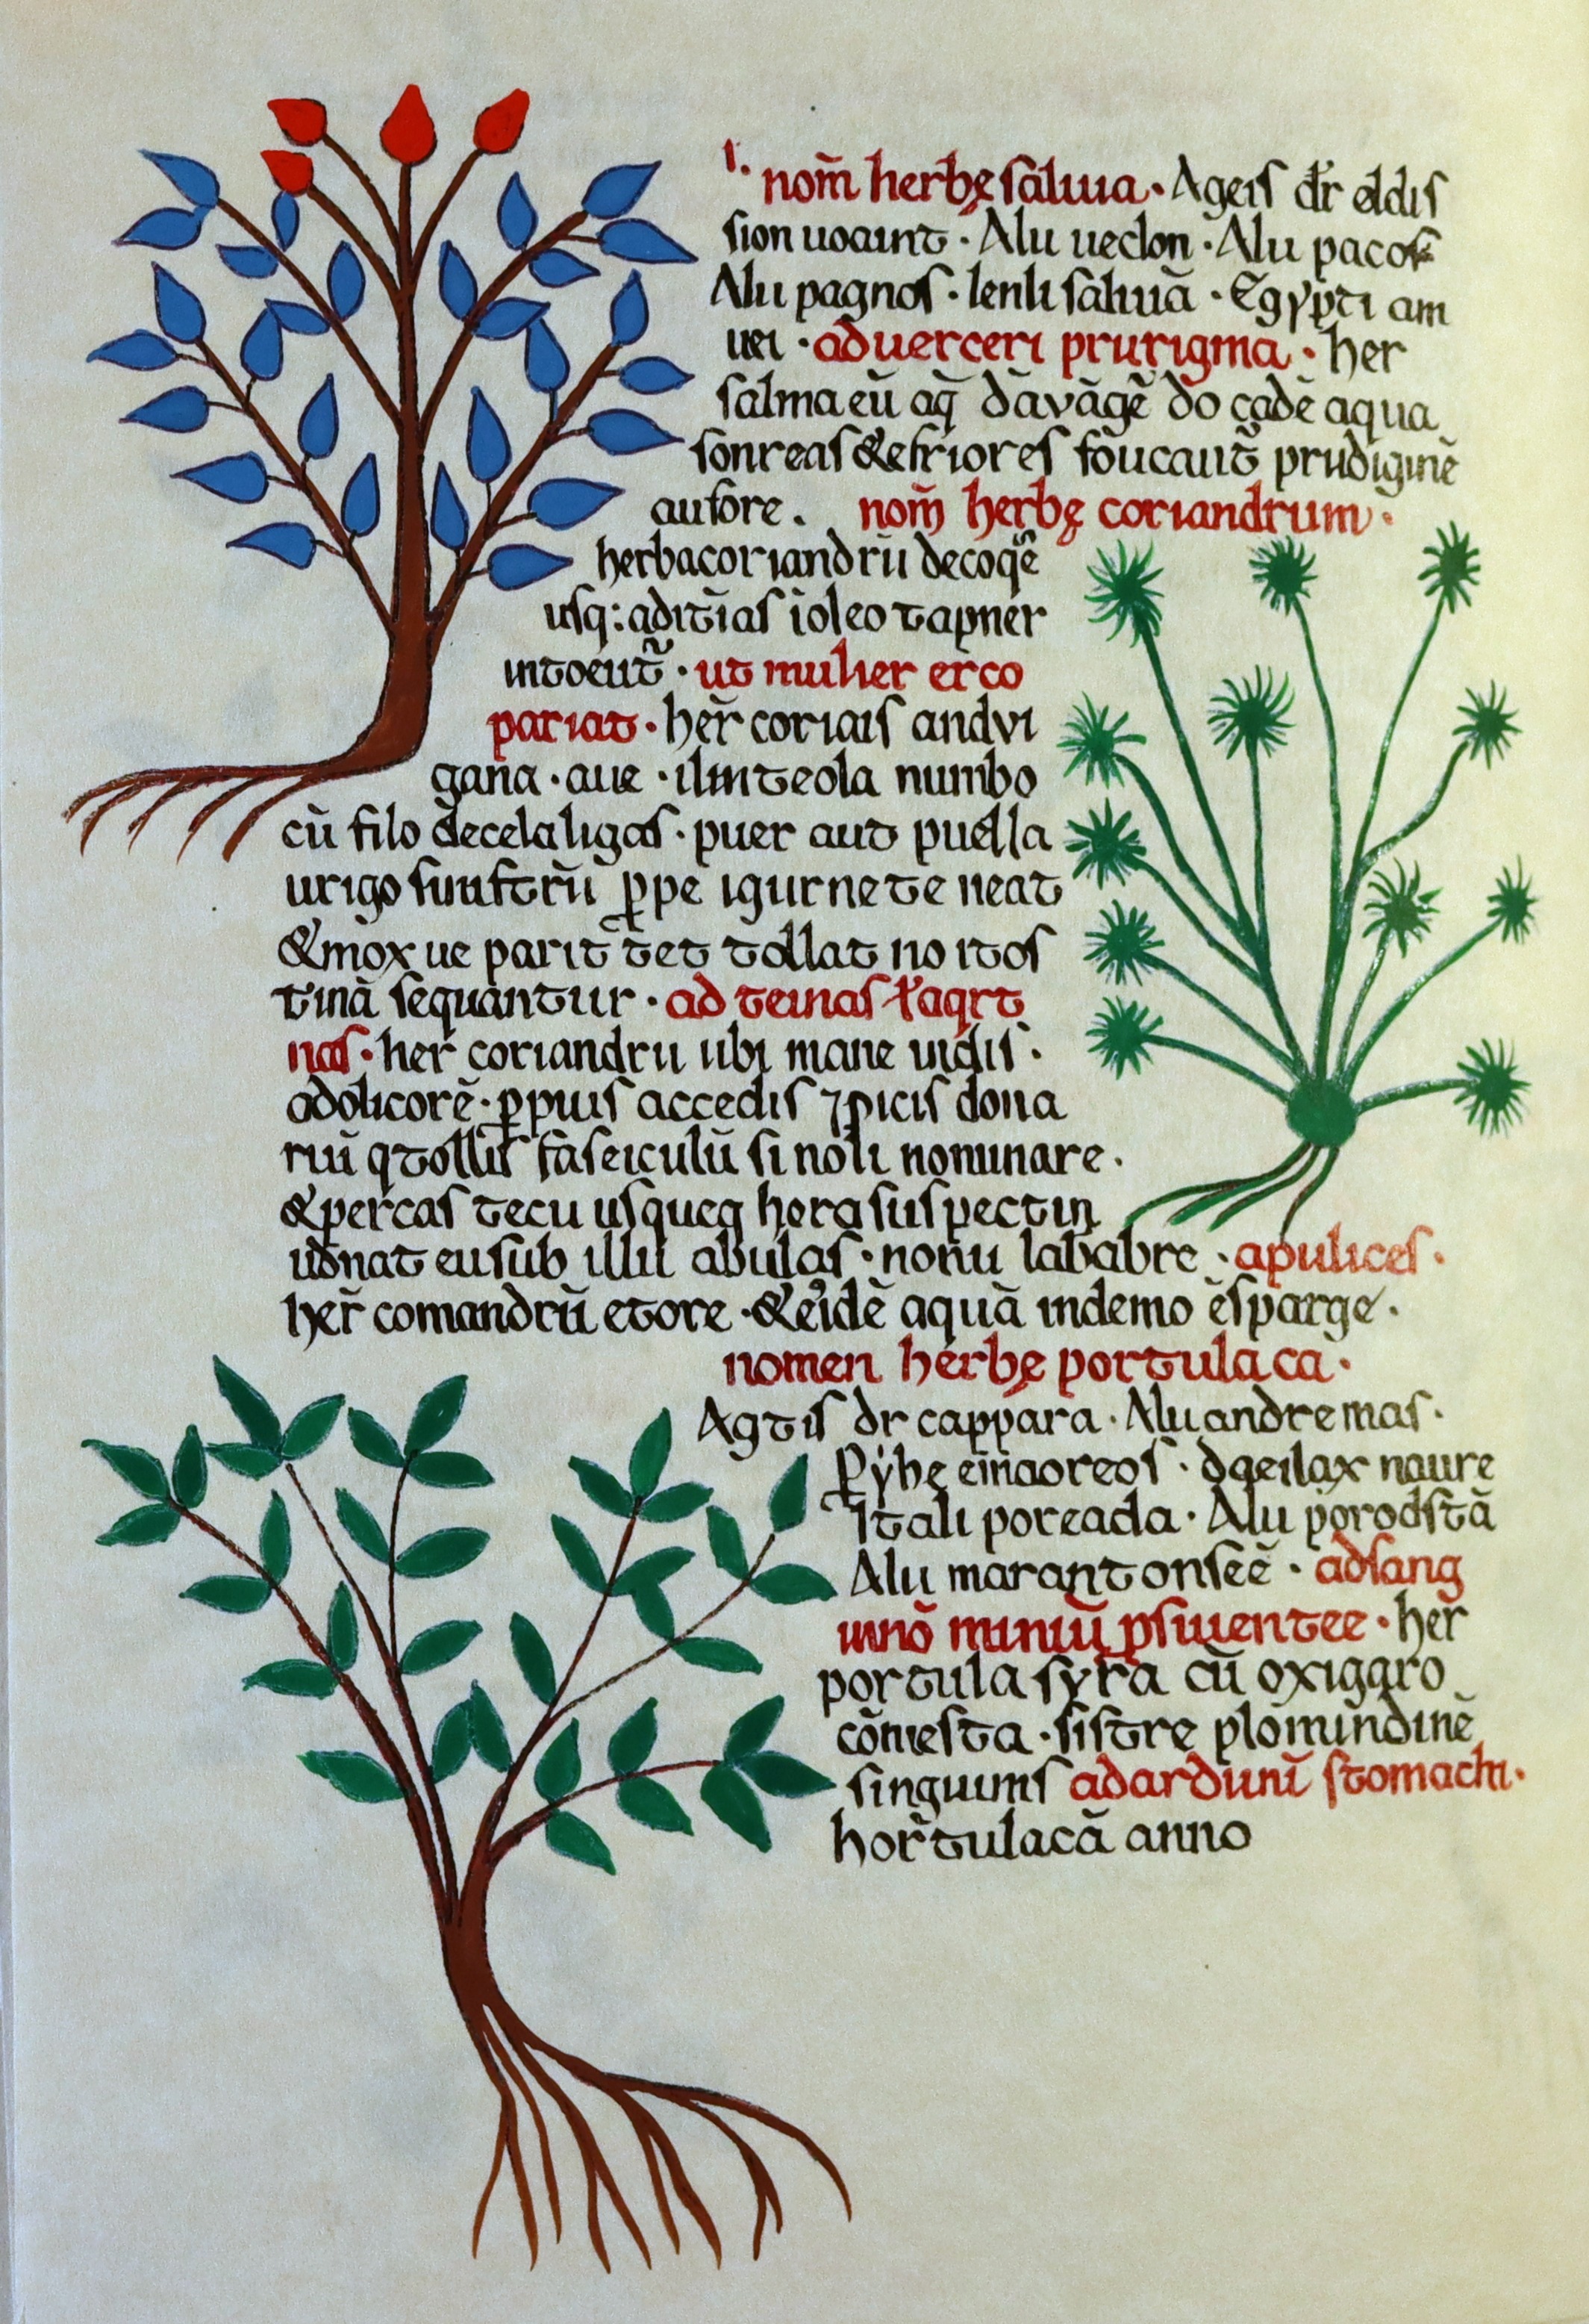 nom̄ herbę saluia · Ageis dr̄ eldis
sion uocaint · Alii ueclon · Alii pacos
Alii pagnos · lenli saluiā · Egypti am
uei · aduerceri prurigma · her
salma eū aq̄ dāvāgē do cadē aqua
sonreas & efriores fōucaut̄ prudiginē
aufore . nom̄ herbę coriandrum ·
herbacoriandrū decoqē
usq: aditīas īoleo tapner
intoeut̄ · ut mulier erco
pariat · her̄ coriais andvi
gana · aue · ilinteola numbo
cū filo decelaligas · puer aut puella
urigo ꝑpe igurnete neat
& mox ue parit tet tollat no itos
tinā sequantur · ad teinas
nas · her coriandru ubi mane uidis ·
adolicorē · ꝑpuis accedis ⁊picis dona
riū qtollis faseiculū si noli nonunare ·
& percas tecu usqueq hora suspectin
udnat eusub illu abulas · nonu lababre · apulices ·
her̄ comandrū etore · & eidē aquā indemo ēsparge ·
nomen herbę portulaca ·
Agtis dr cappara · Alu andremas ·
einaoreos · dgeilax naure
Itali poreada · Alu porodstā
Alu marantonseē · adsang
uinō miniū psiuentee · her
portula syra cū oxiggro
cōmesta · sistre plomundinē
singuuns adardunī stomachi ·
hor̄tulacā anno